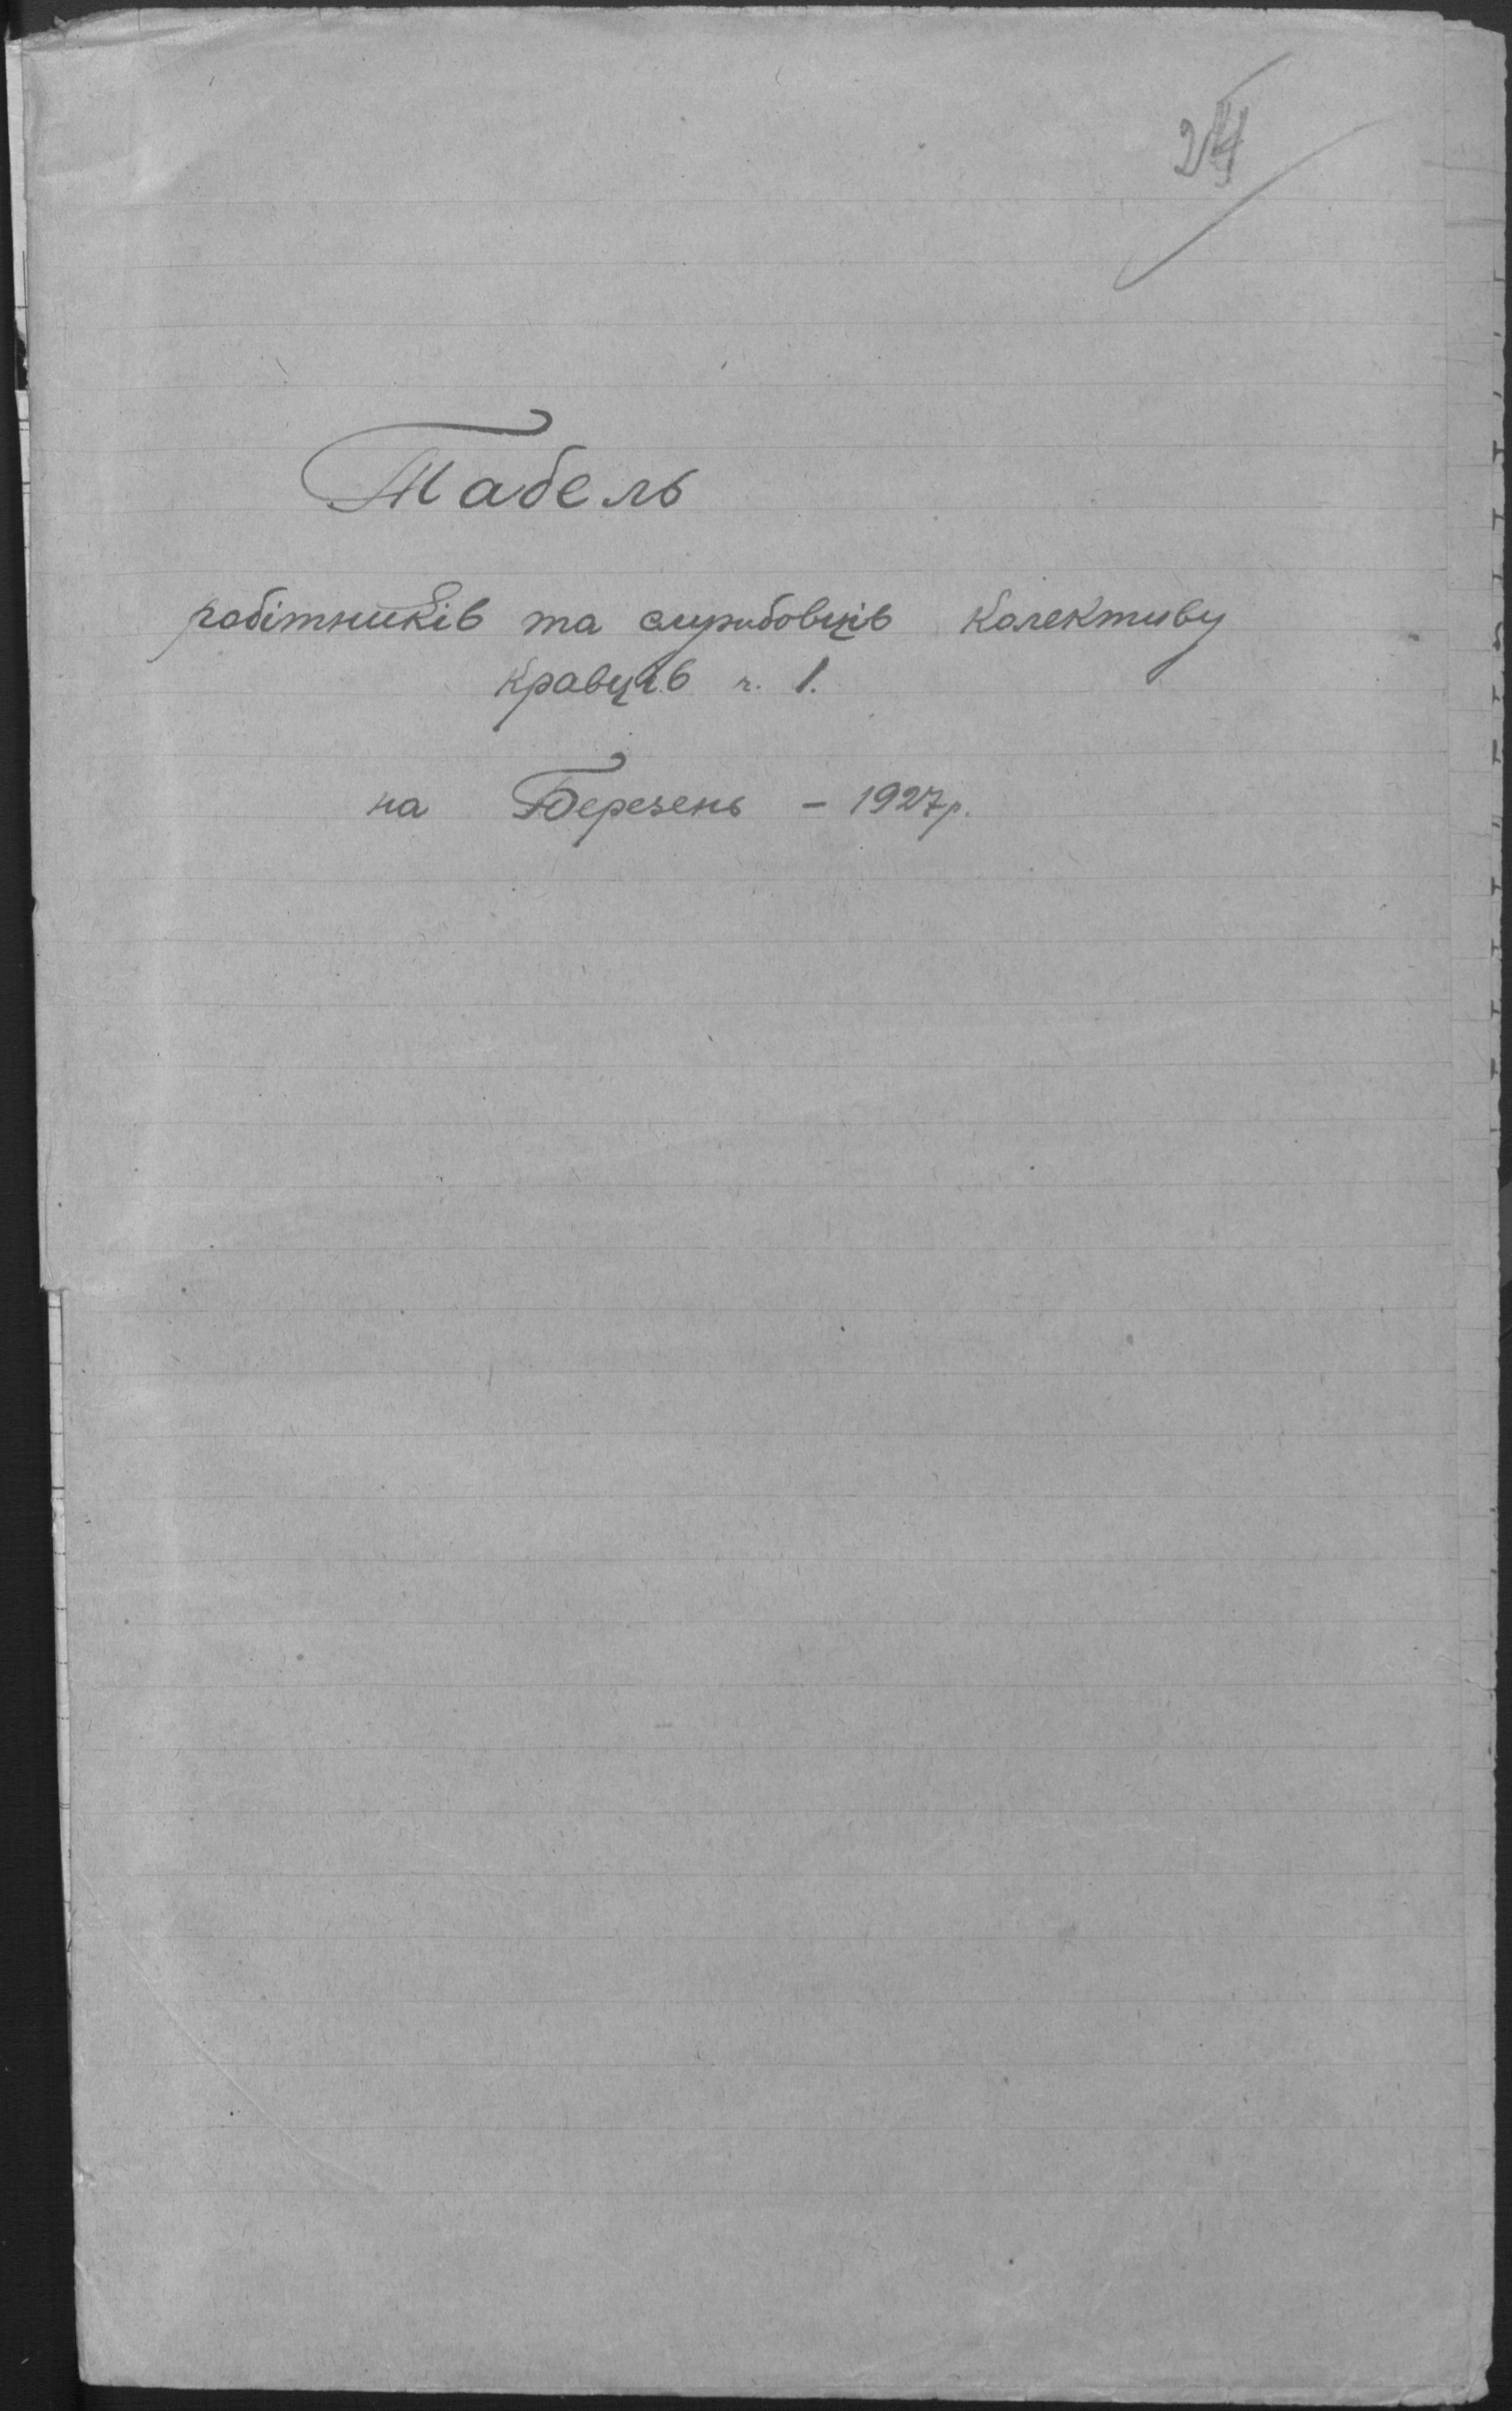 Табель
робітників та службовців Колективу
Кравців ч. 1.
на Березень - 1927 р.